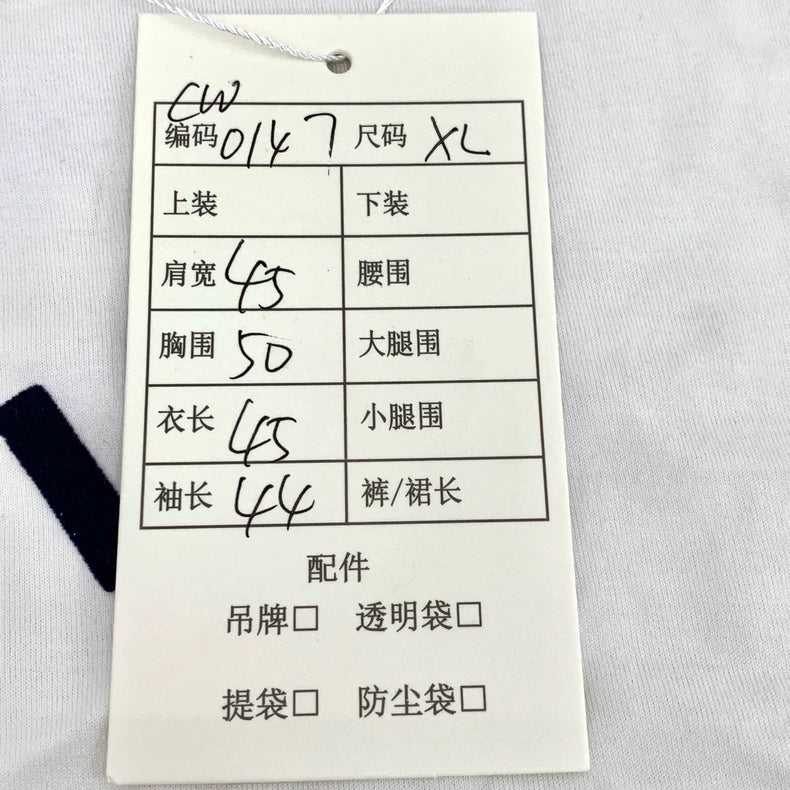 CW
编码 0147 尺码 XL
上装 下装
肩宽 45 腰围
胸围 50 大腿围
衣长 45 小腿围
袖长 44 裤/裙长
配件
吊牌□ 透明袋□
提袋□ 防尘袋□